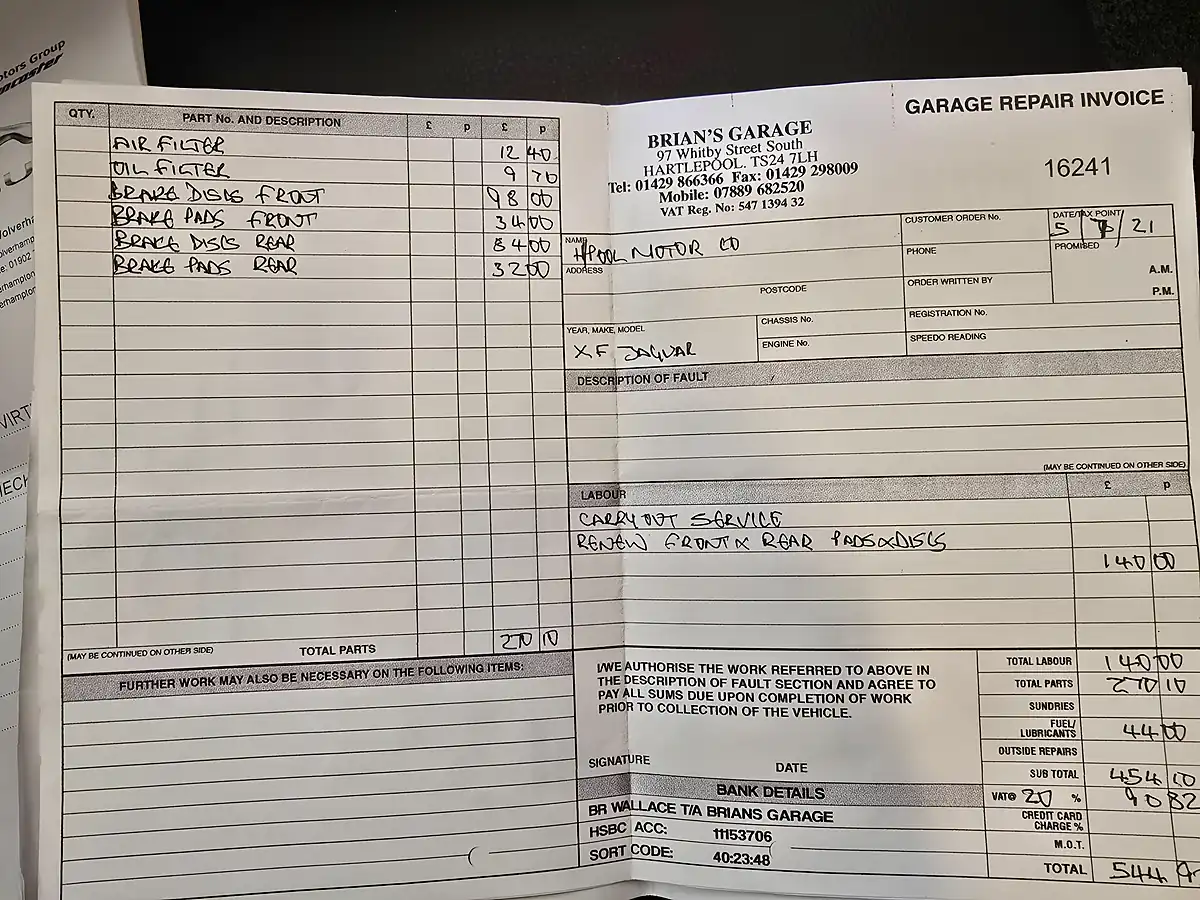 otors Group
ncaster
GARAGE REPAIR INVOICE
BRIAN'S GARAGE
97 Whitby Street South
HARTLEPOOL. TS24 7LH
Tel: 01429 866366 Fax: 01429 298009
Mobile: 07889 682520
VAT Reg. No: 547 1394 32
16241
QTY. PART No. AND DESCRIPTION £ p £ p
AIR FILTER 12 40
OIL FILTER 9 70
BRAKE DISCS FRONT 98 00
BRAKE PADS FRONT 34 00
BRAKE DISCS REAR 84 00
BRAKE PADS REAR 32 00
(MAY BE CONTINUED ON OTHER SIDE) TOTAL PARTS 270 10
FURTHER WORK MAY ALSO BE NECESSARY ON THE FOLLOWING ITEMS:
NAME H/POOL MOTOR CO
ADDRESS
POSTCODE
CUSTOMER ORDER No.
PHONE
ORDER WRITTEN BY
DATE/TAX POINT
5 / 7 / 21
PROMISED
A.M.
P.M.
YEAR, MAKE, MODEL
XF JAGUAR
CHASSIS No.
ENGINE No.
REGISTRATION No.
SPEEDO READING
DESCRIPTION OF FAULT
(MAY BE CONTINUED ON OTHER SIDE)
LABOUR £ p
CARRY OUT SERVICE
RENEW FRONT & REAR PADS & DISCS
140 00
I/WE AUTHORISE THE WORK REFERRED TO ABOVE IN
THE DESCRIPTION OF FAULT SECTION AND AGREE TO
PAY ALL SUMS DUE UPON COMPLETION OF WORK
PRIOR TO COLLECTION OF THE VEHICLE.
SIGNATURE DATE
BANK DETAILS
BR WALLACE T/A BRIANS GARAGE
HSBC ACC: 11153706
SORT CODE: 40:23:48
TOTAL LABOUR 140 00
TOTAL PARTS 270 10
SUNDRIES
FUEL/
LUBRICANTS 44 00
OUTSIDE REPAIRS
SUB TOTAL 454 10
VAT@ 20 % 90 82
CREDIT CARD
CHARGE %
M.O.T.
TOTAL 544 9